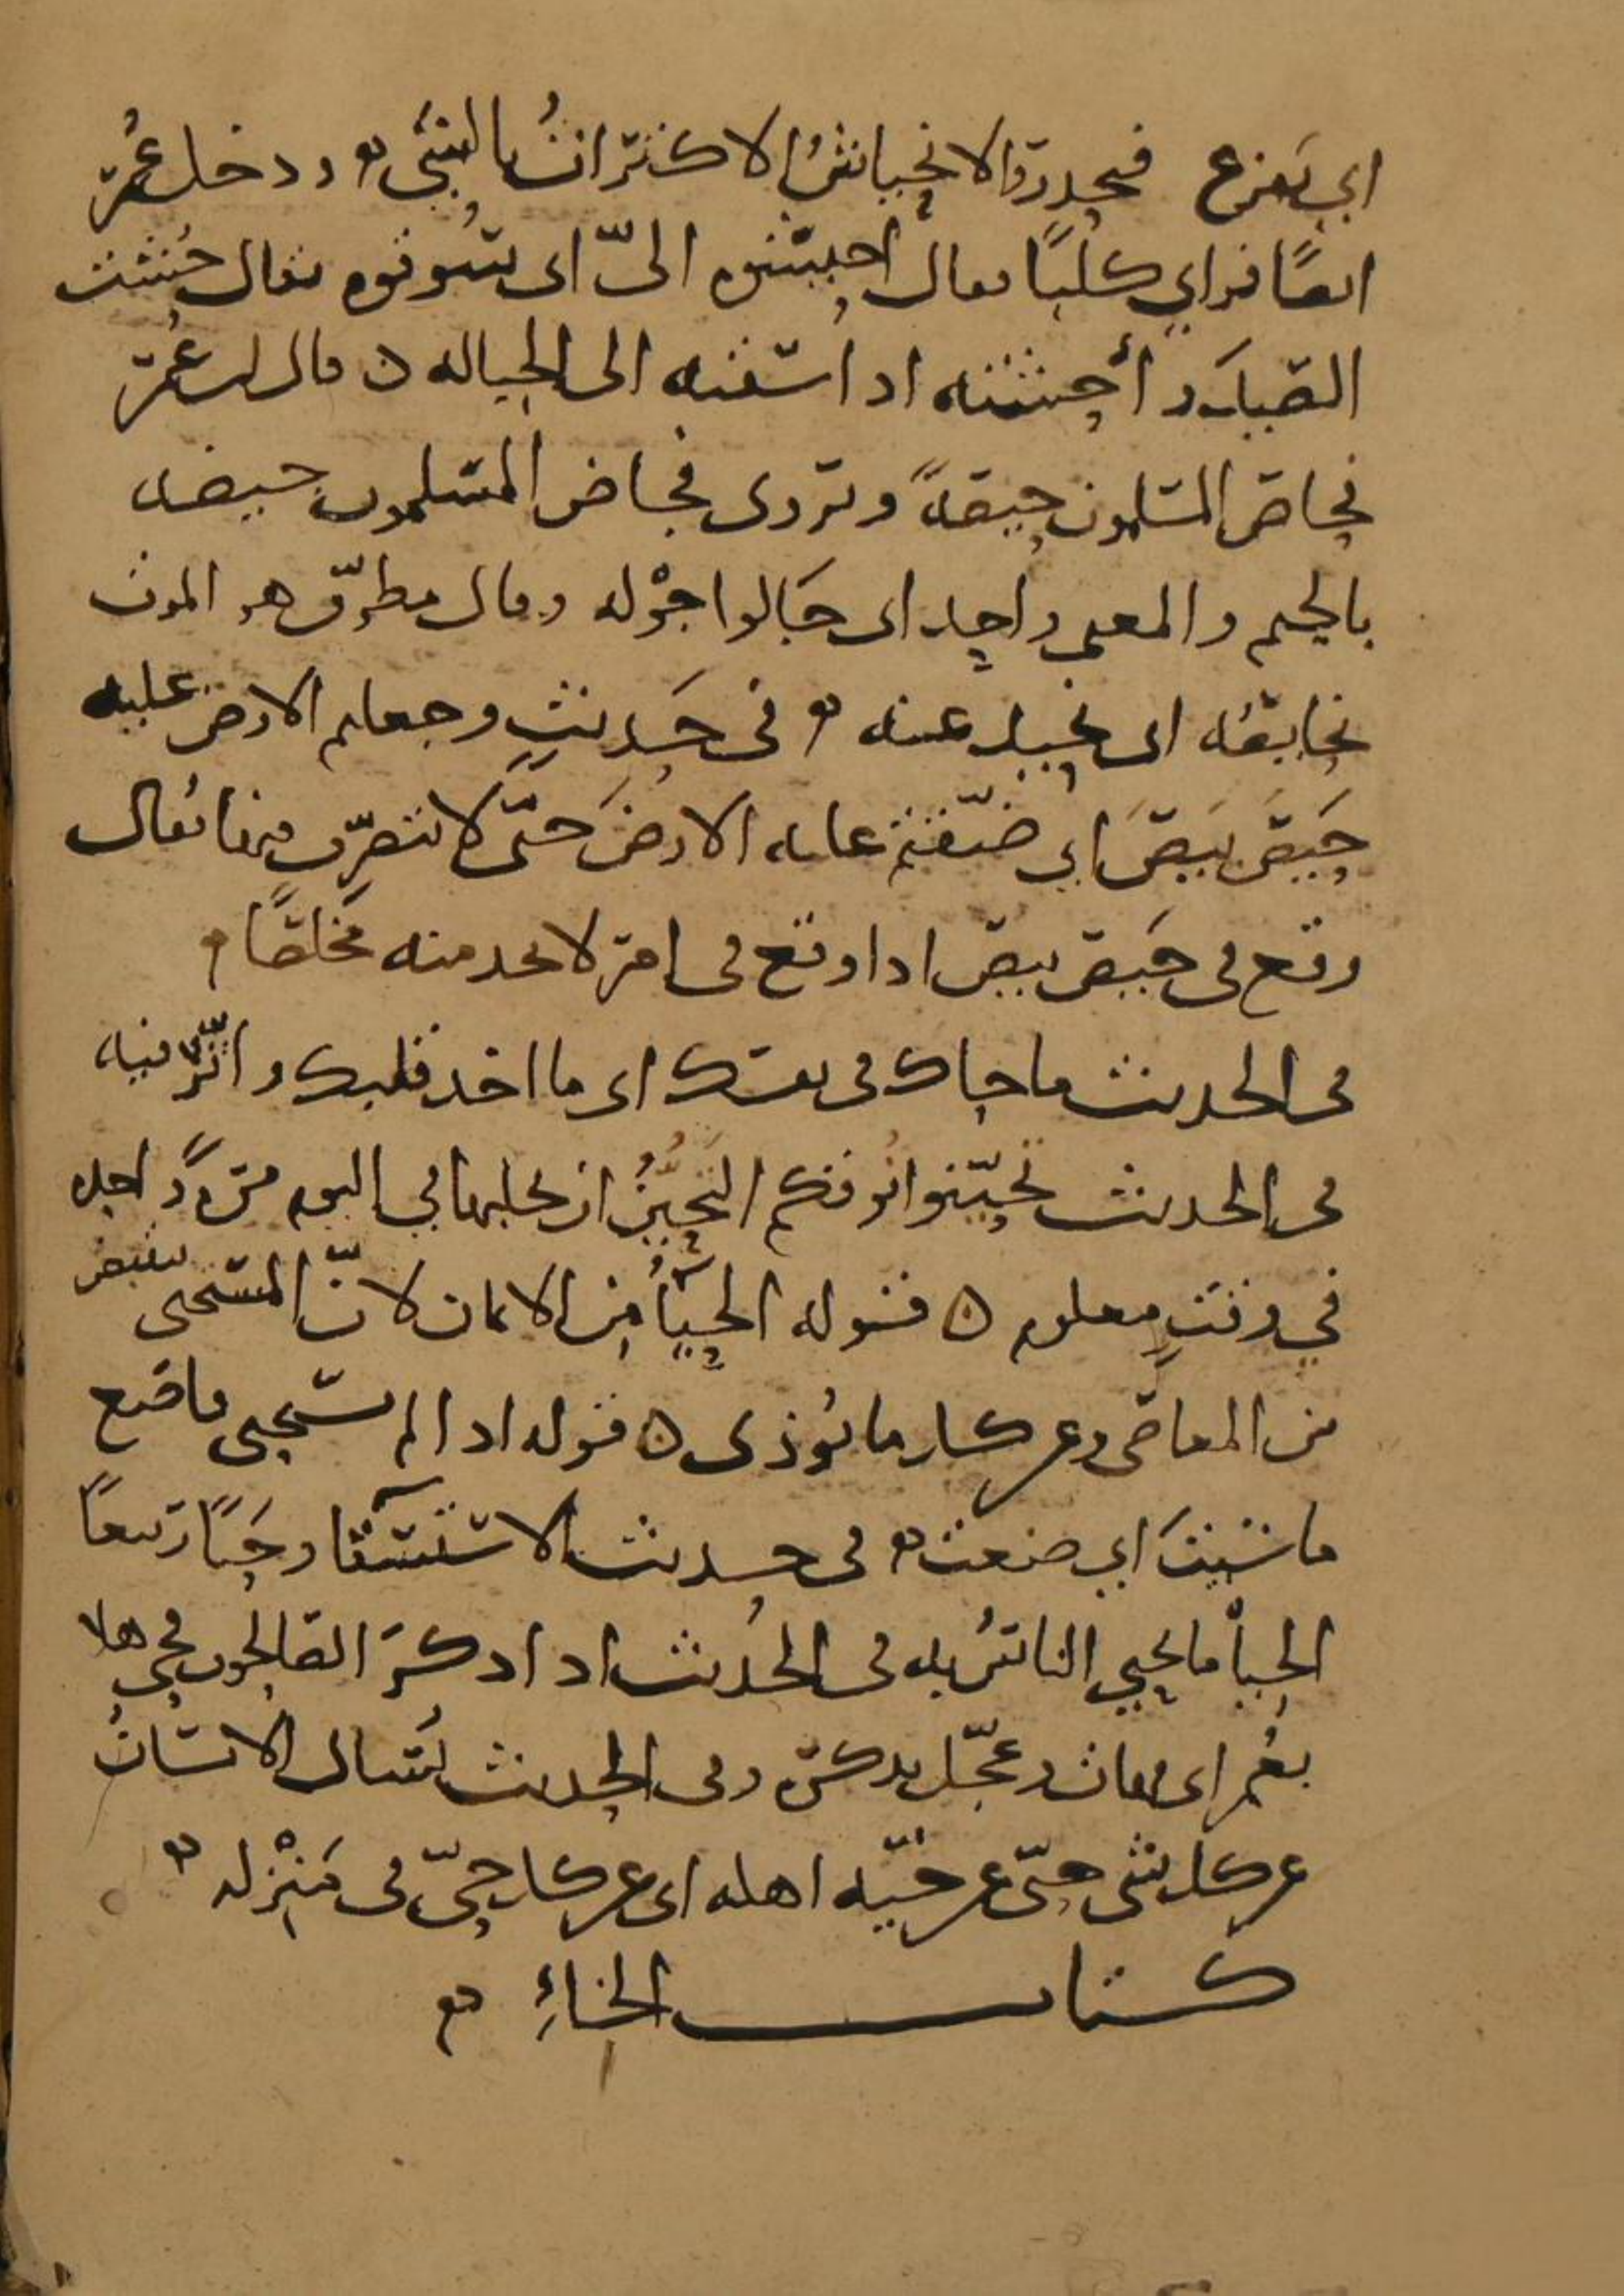 اي يفزع فيحذروا الانحياش الاكتراث بالشي ودخل عمر
ارضًا فراي كلبًا فقال احيشوه اليّ اي سوقوه يقال حُشت
الصيد وأحشته اذا سقته الى الحباله ه قال ابن عُمر
فحاص المسلمون حيصةً ويروى فجاض المسلمون جيضه
بالجيم والمعنى واحد اى جَالوا جوْله وقال مطرّف هو الموت
نحايصُه اى نحيد عنه في حَديثٍ وجعلتم الارض عليه
حَيصَ بَيصَ اي ضيّقتم عليه الارضَ حتّى لا يتصرّف فيها يُقال
وقع في حَيص بيص اذا وقع في امر لا يجد منه مخلصًا
في الحديث ما حاك في نفسك اى ما اخذ قلبك واثّر فيه
في الحديث تحيّنوا نُوقكم التحَيُّنُ ان يحلبها في اليوم مرّةً واحده
في وقتٍ معلوم ه قوله الحيَآءُ من الايمان لانّ المستحيى ينقبض
من المعاصى وعن كل ما يُوذى ه قوله اذا لم تستحيى فاصنع
ما شيتَ اي صنعت في حديث الاستسقآ وحَيًا ربيعًا
الحيأ ما يحيي الناسُ به في الحديث اذا ذكرَ الصالحون فحيّ هلا
بعُمر اى هات وعجّل بذكره وفي الحديث يُسال الانسانُ
عن كل شي حتّى عن حيّه اهله اى عن كل حيّ في مَنْزله
كتاب الخاءِ